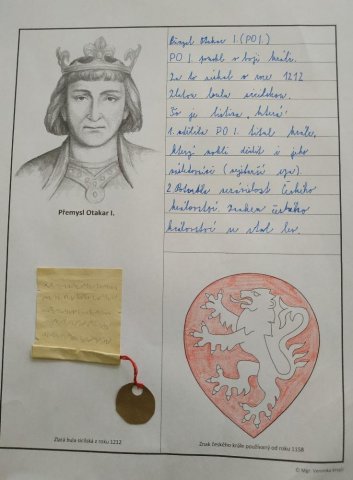 Přemysl Otakar I. (PO I.)
PO I. v boji krále.
Za to získal v roce 1212
Zlatou bulu sicilskou.
To je listina, která:
1. udělila PO I. titul krále,
který mohli dědit i jeho
následovníci (nejstarší syn).
2. Potvrdila nezávislost českého
království. Znakem českého
království se stal lev.
Přemysl Otakar I.
Zlatá bula sicilská z roku 1212
Znak českého krále používaný od roku 1158
© Mgr. Veronika